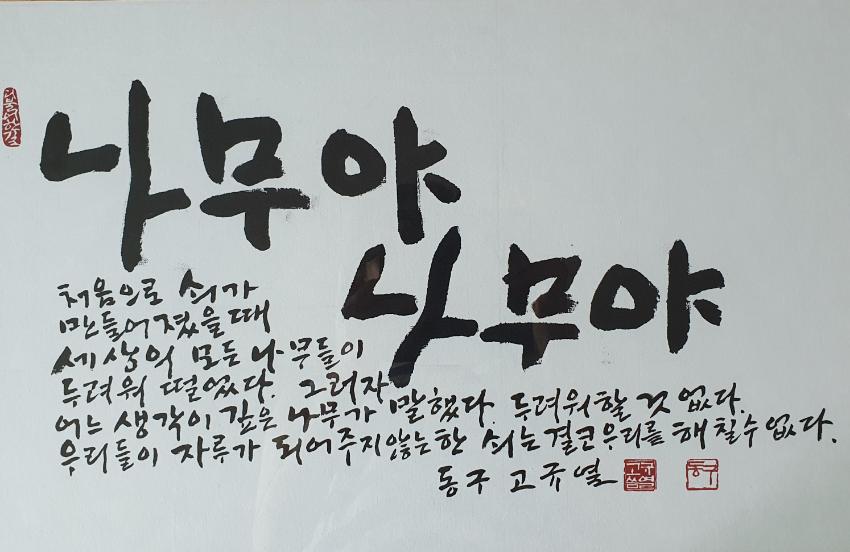 나무야
나무야
처음으로 쇠가
만들어졌을때
세상의 모든 나무들이
두려워 떨었다. 그러자
어느 생각이 깊은 나무가 말했다. 두려워할 것 없다.
우리들이 자루가 되어주지않는한 쇠는 결코 우리를 해칠수 없다.
동구 고규열